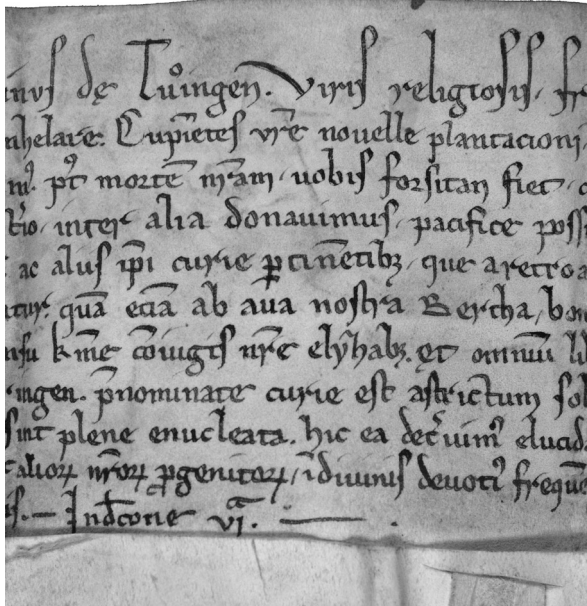 inus de Tuͦingen. Viris religiosis. fr
nhelare. Cupiētes vr̄e nouelle plantacioni.
m̄. pt̄ mortē nr̄am. uobis forsitan fiet.
tīo. inter alia donauimus. pacifice poss
ac aliis ip̄i curie ꝑtinētibꝫ. que a retroa
tur. quā eciā ab aua nostra Bercha. bon
nsu k̄me cōiugis nr̄e elyzhabꝫ. et omniū li
ingen. p̄nominate curie est astrictum sol
sint plene enucleata. hic ea dec̄uim᷒ elucid
aliorꝝ nr̄orꝝ ꝓgenitorꝝ. ī diuinis deuoti᷒ frequē
is. — Ind̄cōne vı̄ᵃ. —